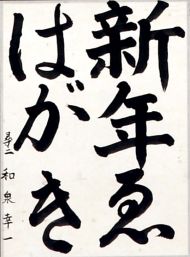 新年ゑ
はがき
尋二 和泉幸一